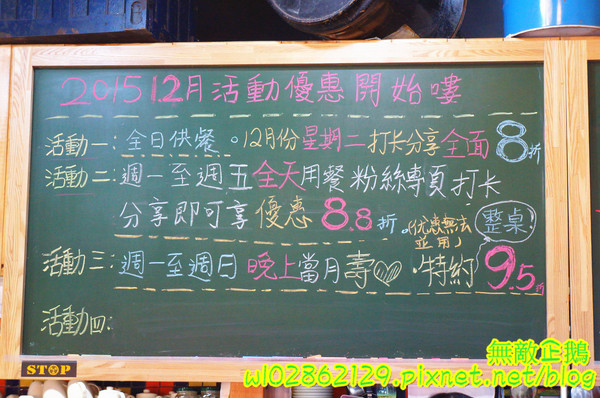 2015 12月活動優惠開始嘍
活動一:全日供餐。12月份星期二打长分享全面8折
活動二:週一至週五全天用餐粉絲專頁打长
分享即可享優惠8.8折。(优惠無法並用)
活動三:週一至週日晚上當月壽♡·特約整桌9.5折
活動四:
STOP
無敵企鵝
w102862129.pixnet.net/blog